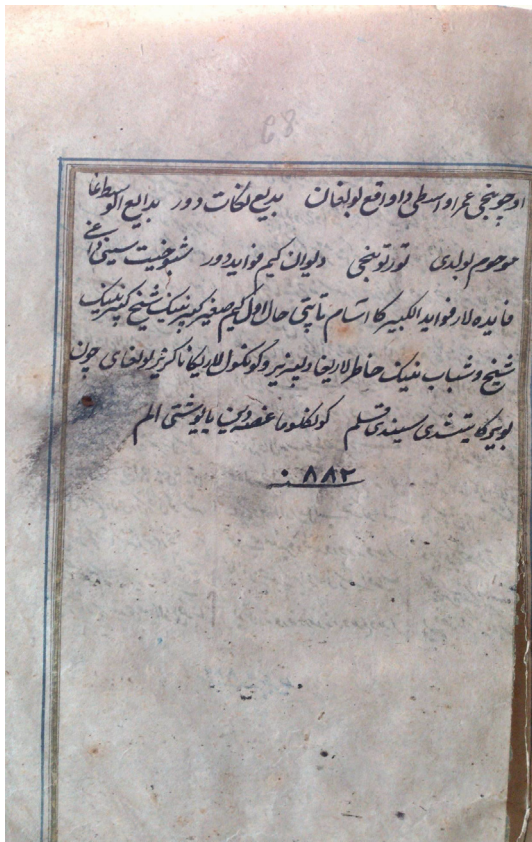 اوچونجی عمر اوسطی دا واقع بولغان بدیع نکات دور بدایع الوسط غا
موحوم بولدی تورتونجی دیوان کیم فوایددور شیوخیت سینی داغی
فایده لار فواید الکبیر کا اتسام تاپتی حال اول کیم صغیر کبیرنینک شیخ کبیرنینک
شیخ و شباب نینک خاطرلاریغا دلپذیر و کونکول لاریکا ناکزیر بولغای چون
بو یرکا یتشدی سیندی قلم کولکلوما غصه دین یاپوشتی الم
۸۸۲